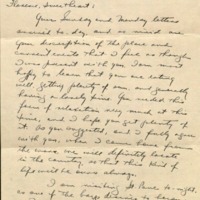 Dearest Sweetheart:
Your Sunday and Monday letters
arrived to-day, and as usual are
Your description of the place and
current events that I feel as though
I was present with you. I am most
happy to learn that you are eating
well, getting plenty of sun, and generally
having a lovely time. You needed this
form of relaxation very much at this
time, and I hope you get plenty of
it. As you suggested, and I fully agree
with you, when I come home from
the wars, we will definitely locate
in the country so that this kind of
life will be ours always.
I am writing St. to-night,
as one of the boys desires to